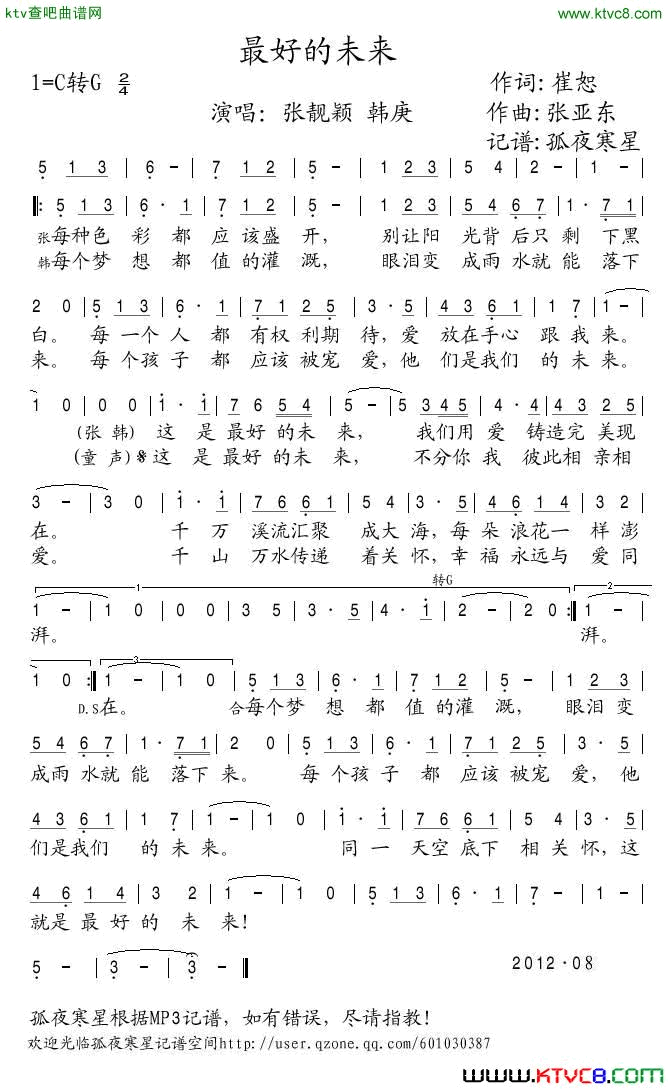 ktv查吧曲谱网
www.ktvc8.com
最好的未来
1=C转G 2/4
作词: 崔恕
演唱: 张靓颖 韩庚
作曲: 张亚东
记谱: 孤夜寒星
5 1 3 | 6 - | 7 1 2 | 5 - | 1 2 3 | 5 4 | 2 - | 1 - |
|: 5 1 3 | 6 · 1 | 7 1 2 | 5 - | 1 2 3 | 5 4 6 7 | 1 · 7 1 |
张每种色 彩 都 应该盛 开, 别让阳 光背 后只 剩 下黑
韩每个梦 想 都 值的灌 溉, 眼泪变 成雨 水就 能 落下
2 0 | 5 1 3 | 6 · 1 | 7 1 2 5 | 3 · 5 | 4 3 6 1 | 1 7 | 1 - |
白。 每 一个 人 都 有权 利期 待,爱 放在手心 跟 我 来。
来。 每 个孩 子 都 应该 被宠 爱,他 们是我们 的 未 来。
1 0 | 0 0 | 1 · 1 | 7 6 5 4 | 5 - | 5 3 4 5 | 4 · 4 | 4 3 2 5 |
(张 韩) 这 是 最好 的未 来, 我们用 爱 铸造完 美现
(童 声) 𝄋这 是 最好 的未 来, 不分你 我 彼此相 亲相
3 - | 3 0 | 1 · 1 | 7 6 2 6 | 5 4 | 3 · 5 | 4 6 1 4 | 3 2 |
在。 千 万 溪流汇聚 成大 海,每 朵 浪花一 样 澎
爱。 千 山 万水传递 着关 怀,幸 福 永远与 爱 同
1 转G 2
1 - | 1 0 | 0 0 | 3 5 | 3 · 5 | 4 · 1 | 2 - | 2 0 :| 1 - |
湃。 湃。
3
1 0 :| 1 - | 1 0 | 5 1 3 | 6 · 1 | 7 1 2 | 5 - | 1 2 3 |
D.S在。 合每个梦 想 都 值 的灌 溉, 眼泪 变
5 4 6 7 | 1 · 7 1 | 2 0 | 5 1 3 | 6 · 1 | 7 1 2 5 | 3 · 5 |
成雨 水就 能 落下 来。 每 个孩 子 都 应该 被宠 爱,他
4 3 6 1 | 1 7 | 1 - | 1 0 | 1 · 1 | 7 6 6 1 | 5 4 | 3 · 5 |
们是我们 的 未 来。 同 一 天空 底下 相 关 怀,这
4 6 1 4 | 3 2 | 1 - | 1 0 | 5 1 3 | 6 · 1 | 7 - | 1 - |
就是 最 好 的 未 来!
5 - | 3 - | 3 - ||
2012·08
孤夜寒星根据MP3记谱,如有错误,尽请指教!
欢迎光临孤夜寒星记谱空间http://user.qzone.qq.com/601030387
www.KTVC8.com